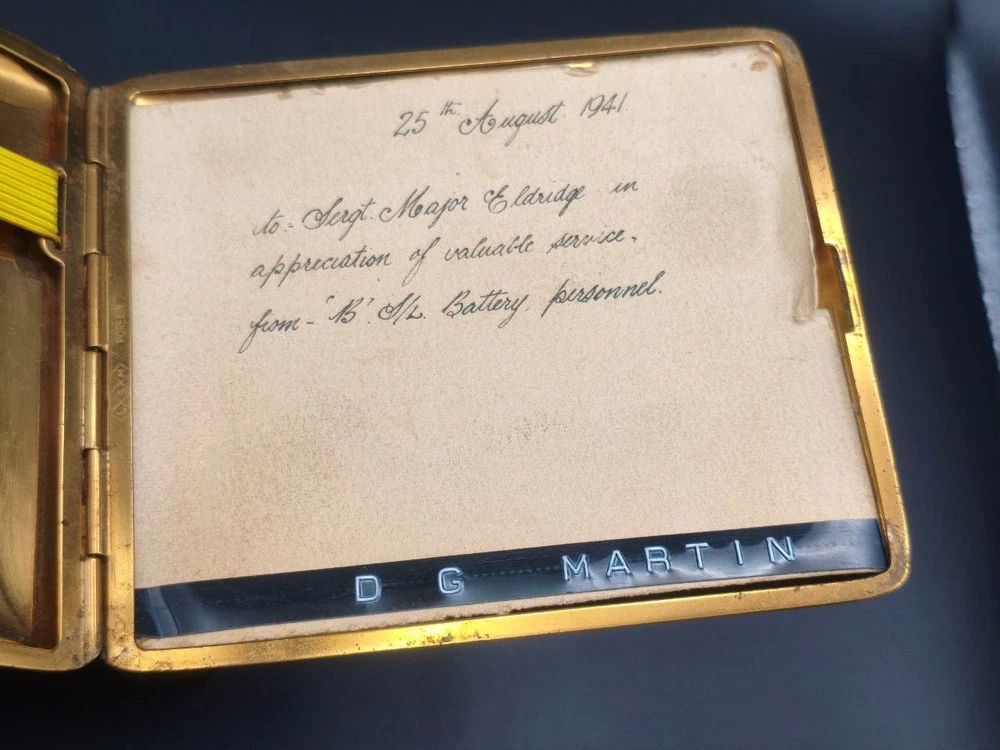 25th August 1941
to - Sergt. Major Eldridge in
appreciation of valuable service.
from - 'B'. S/L. Battery personnel.
D G MARTIN